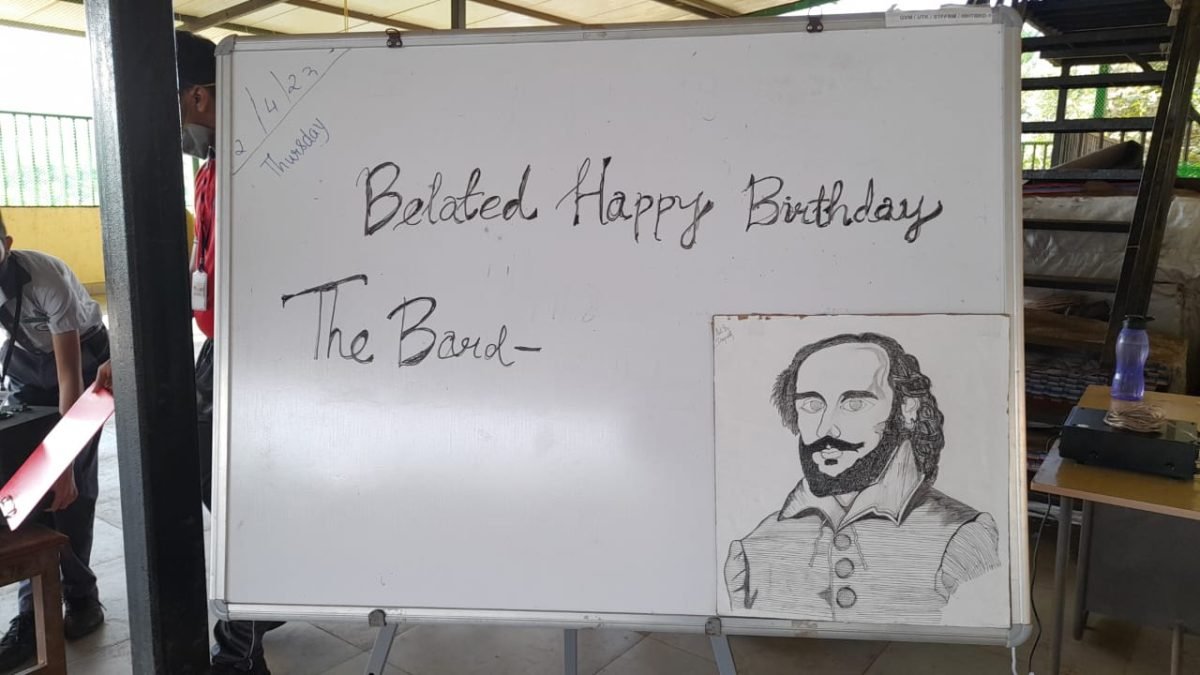 2/4/23
Thursday
Belated Happy Birthday
The Bard-